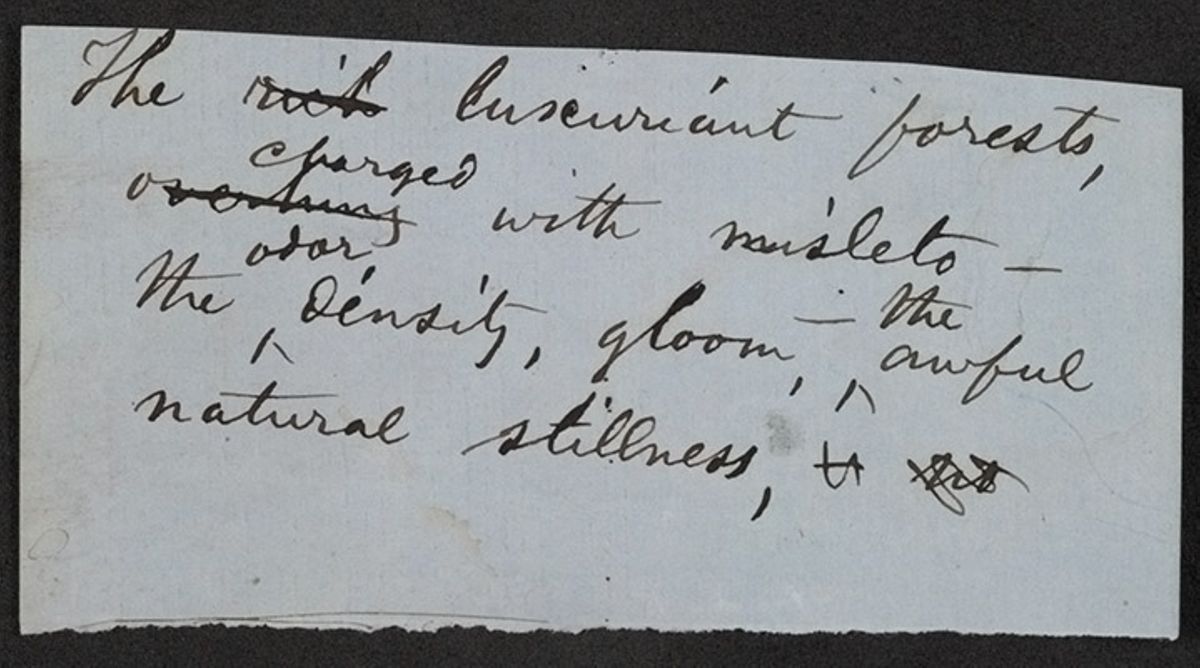 The rich luxuriant forests,
charged
overhung with misleto —
odor
the density, gloom, — the
awful
natural stillness,